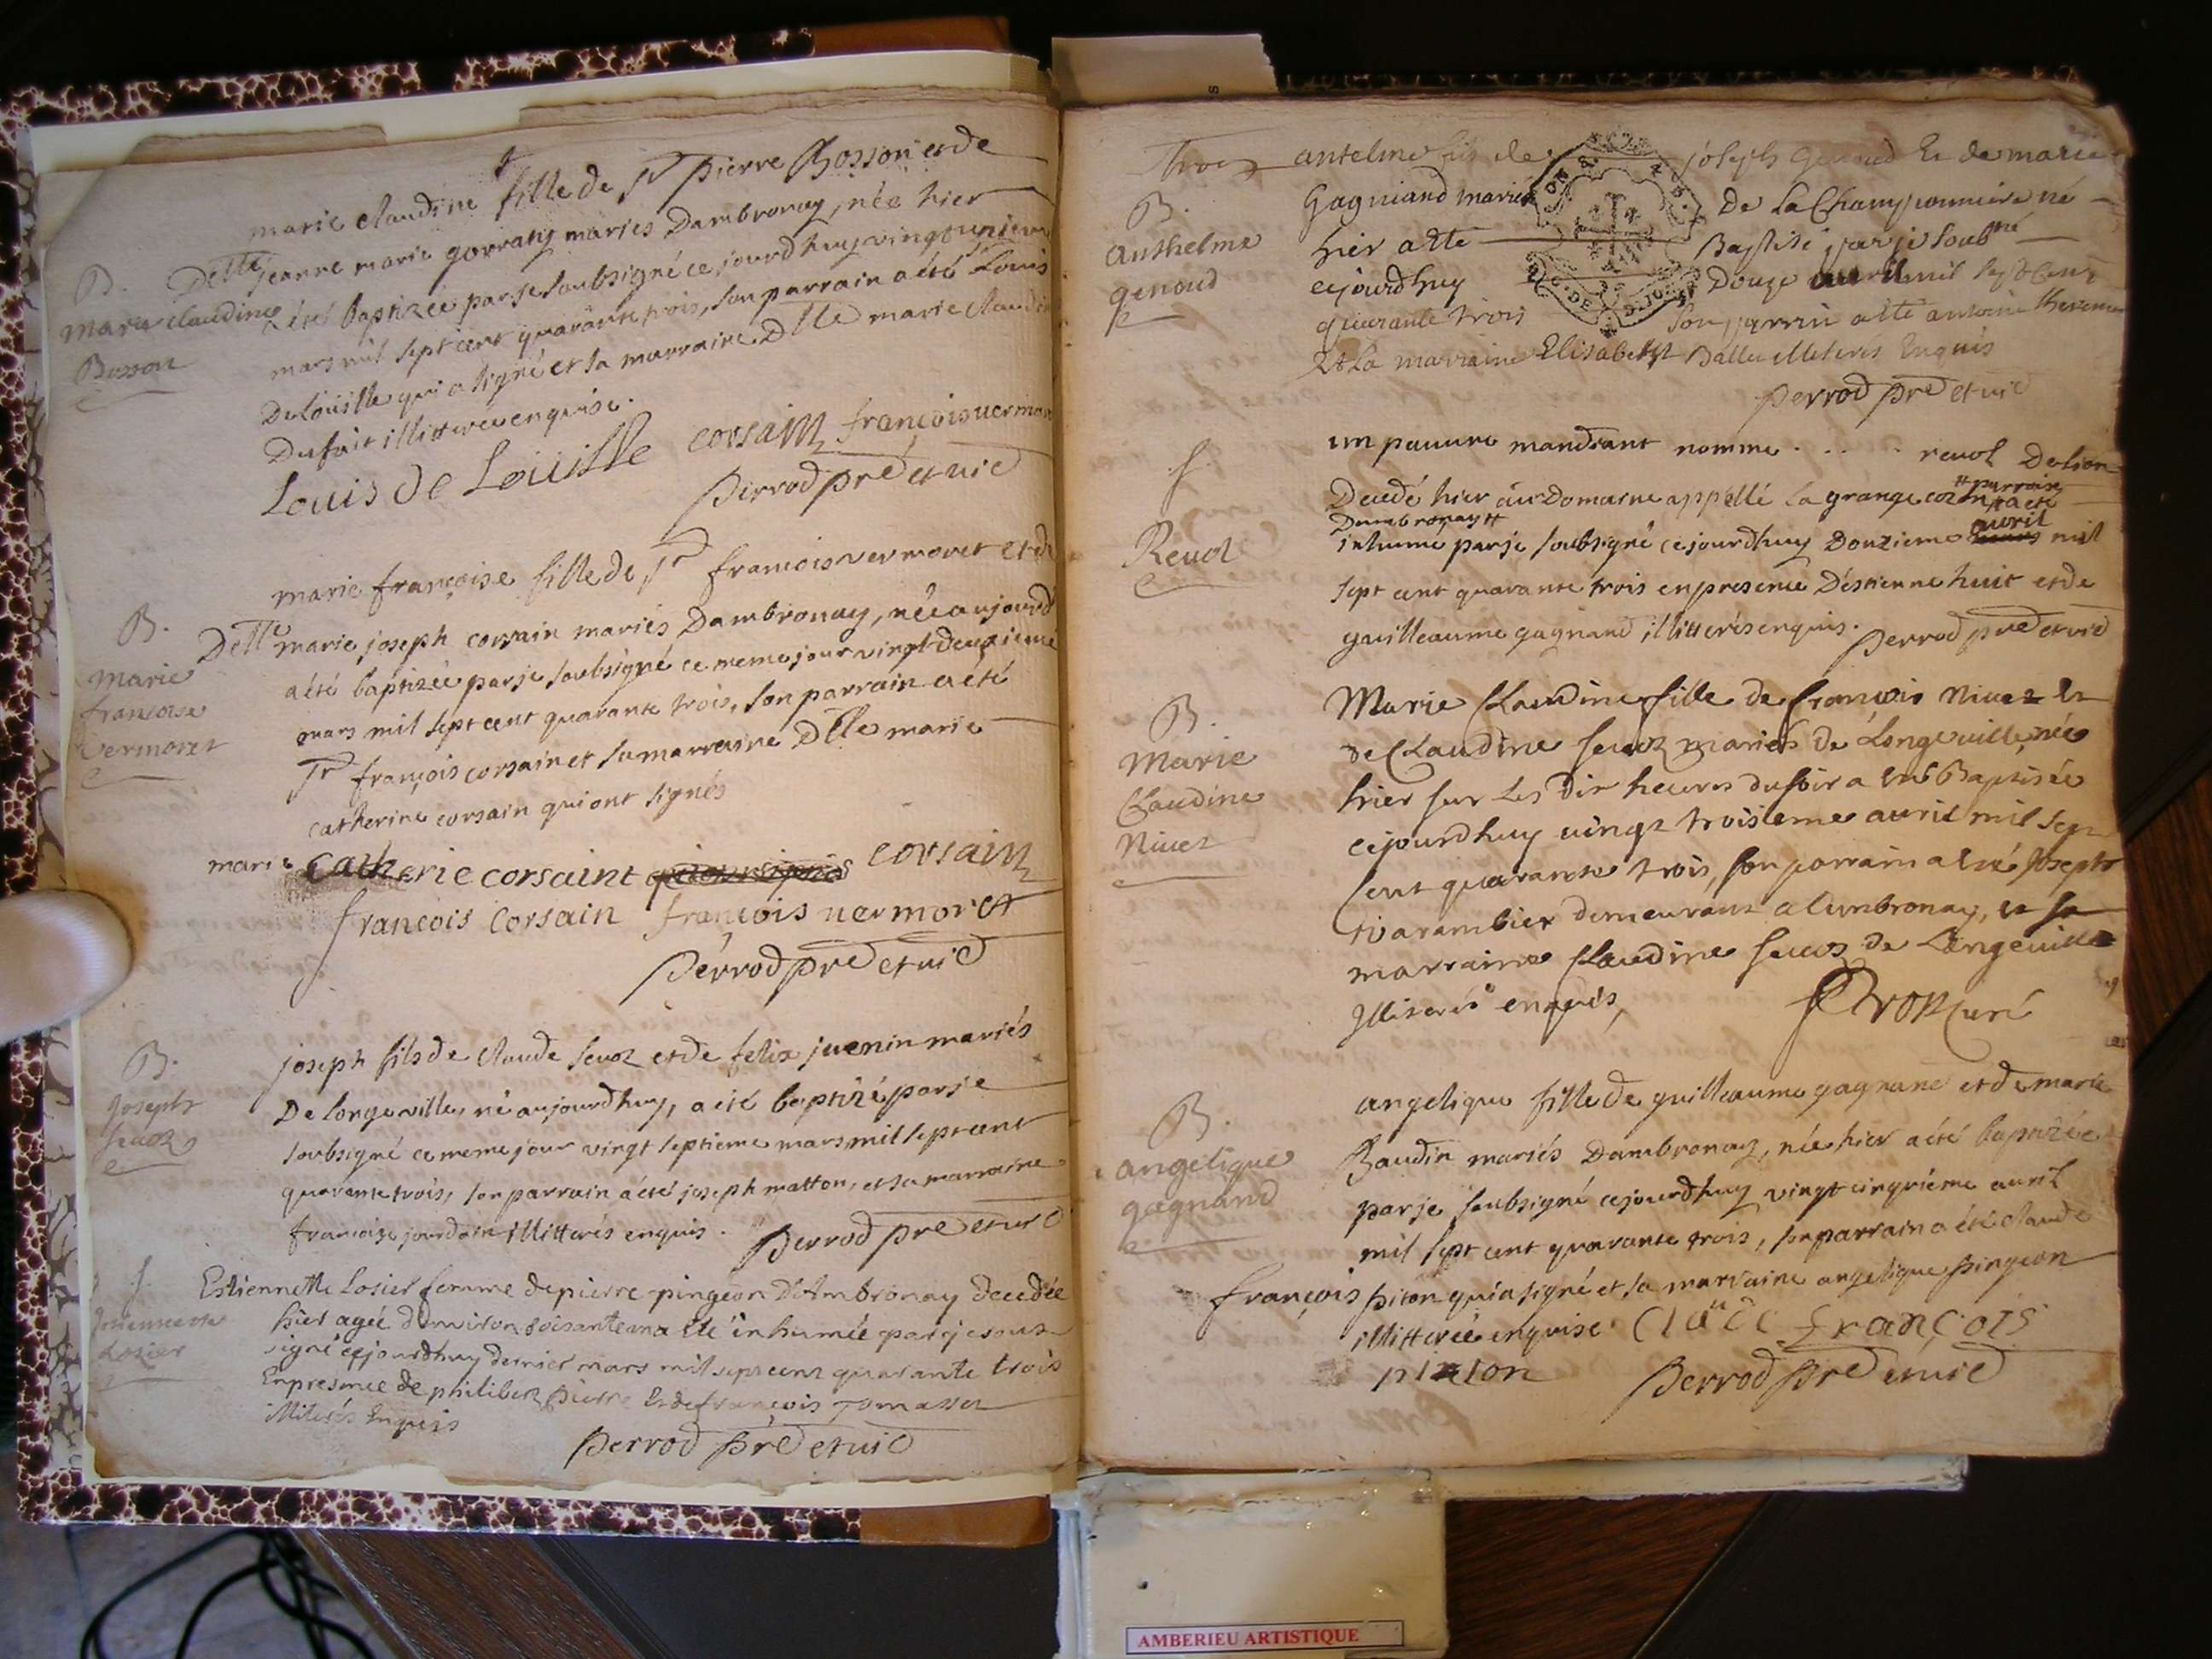 marie claudine fille de Sr pierre Bosson et de
B. Delle jeanne marie gorraty mariés Dambronay, née hier
marie claudine a été baptizée par je soubsigné ce jourdhuy vingt unieme
Bosson mars mil sept cent quarante trois, son parrain a été Sr Louis
De Loüille qui a signé et sa marraine Dlle marie claudine
Dufait illitterée enquise.
Louis de Loüille corsain françois vermoret
perrod pre et vic
marie françoise fille de Sr francois vermoret et de
B. Delle marie joseph corsain mariés Dambronay, née aujourd
marie a été baptizée par je soubsigné ce meme jour vingt deuxieme
francoise mars mil sept cent quarante trois, son parrain a été
vermoret Sr françois corsain et sa marraine Dlle marie
catherine corsain qui ont signés
marie catherie corsaint corsain
francois corsain françois vermoret
perrod pre et vic
B. joseph fils de claude sevoz et de felix juenin mariés
Joseph De longeville, né aujourdhuy, a été baptizé par je
sevoz soubsigné ce meme jour vingt septieme mars mil sept cent
quarante trois, son parrain a été joseph matton, et sa marraine
francoise jourdain illitterés enquis. perrod pre et vic
S. Estiennette Losier femme de pierre pingeon d'Ambronay decedée
Losier hier agée d'environ soisante ans a été inhumée par je sous-
signé cejourdhuy dernier mars mil sept cent quarante trois
En presence de philibert pierre Et de françois Tomasset
illiterés Enquis
perrod pre et vic
Trois antelme fils de joseph Genoud Et de marie
B. Gagniand mariés De La Championniere né
Anthelme hier a été Baptisé par je soubné
genoud cejourdhuy Douze avril mil sept Cent
quarante trois son parrin a été antoine
Et La marraine Elisabeth Ballu illiterés Enquis
perrod pre et vic
S. un pauvre mandiant nomme . . . . revol De lion
Decedé hier au Domaine appellé la grange cozon, # a été
Dambronay # # parroisse
Revol inhumé par je soubsigné cejourdhuy Douzieme avril mil
sept cent quarante trois en presence D'estienne huit et de
guilleaume gagnand illitterés enquis. perrod pre et vic
B. Marie Claudine fille de françois Nivet Et
Marie de Claudine sevoz mariés de Longeville, née
Claudine hier sur Les dix heures du soir a Eté Baptisée
Nivet cejourdhuy vingt troisieme avril mil sept
Cent quarante trois, son parrain a Eté Joseph
tivarambier demeurant a Ambronay, et sa
marraine Claudine sevoz de Longeville
Illiterés enquis, Curé
B. angelique fille de guilleaume gagnand et de marie
angelique Baudin mariés Dambronay, née hier a été baptizée
gagnand par je soubsigné cejourdhuy vingt cinqvième avril
mil sept cent quarante trois, son parrain a été claude
françois piton qui a signé et sa marraine angelique pingeon
illitterée enquise. Claude François
piton perrod pre et vic
AMBERIEU ARTISTIQUE